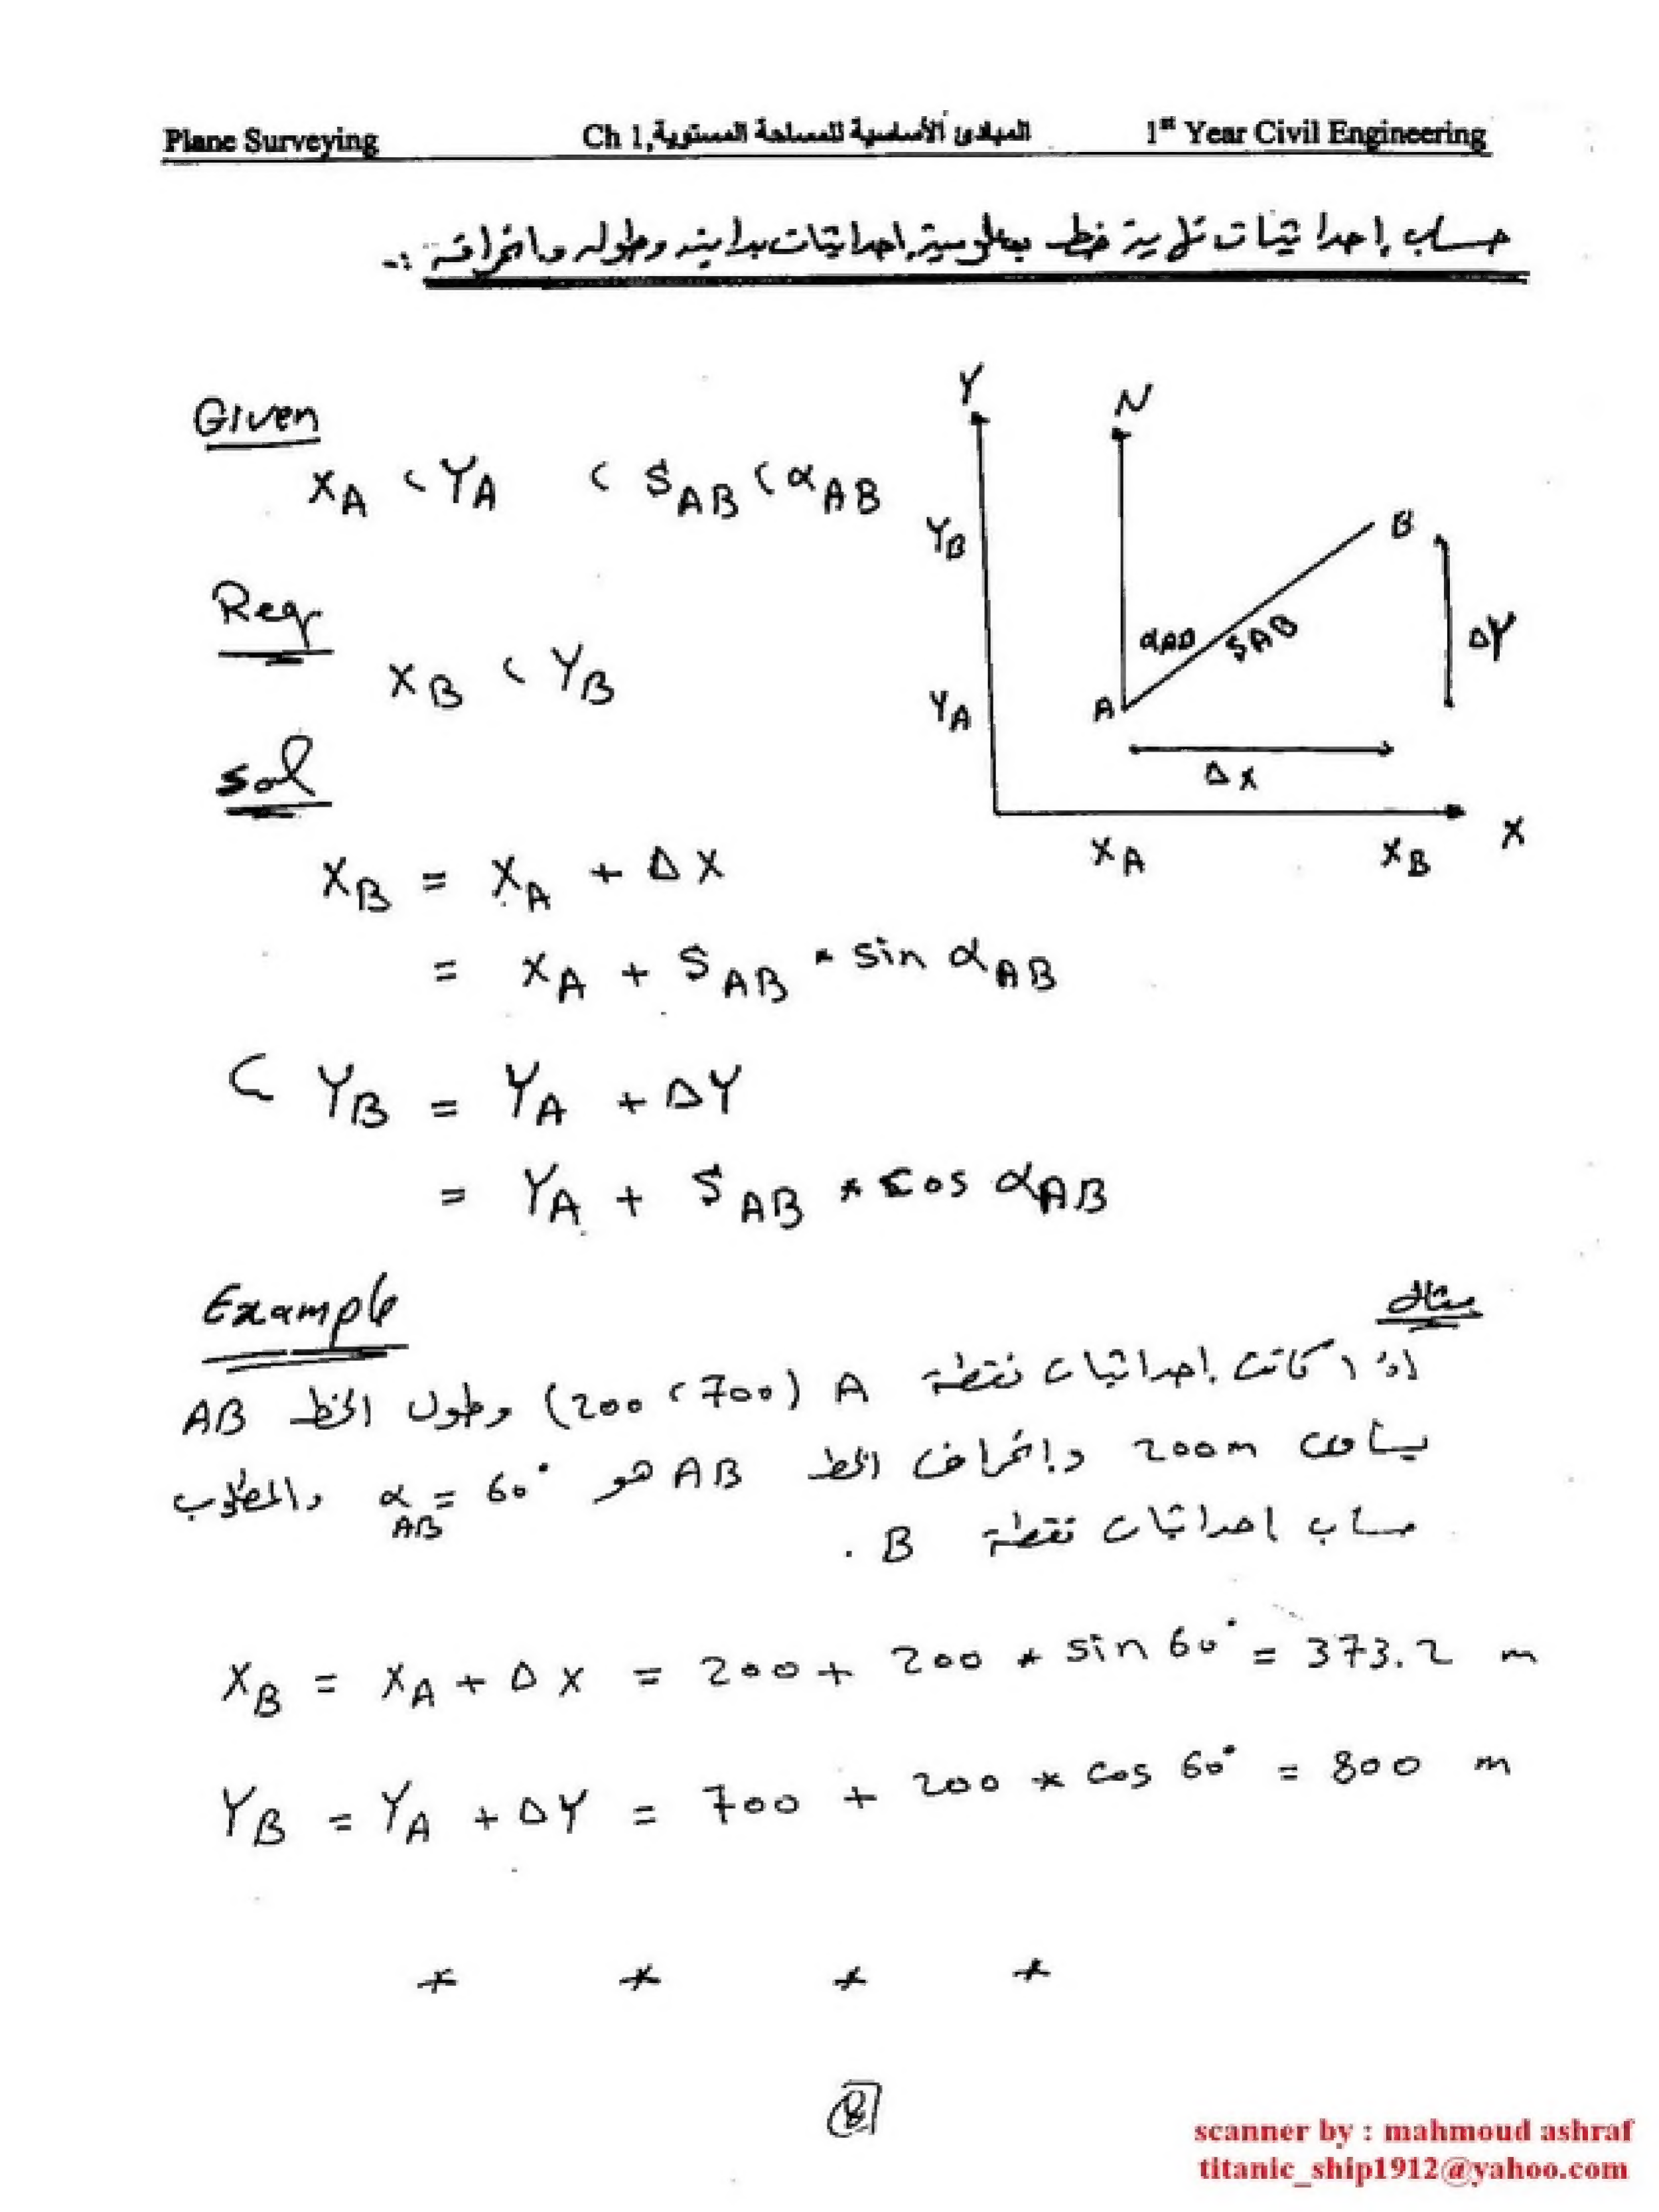 Plane Surveying Ch 1,المبادئ الأساسية للمساحة المستوية 1st Year Civil Engineering
حساب إحداثيات نهاية خط بمعلومية إحداثيات بدايته وطوله وانحرافه :-
Given
X_A ، Y_A ، S_AB ، α_AB
Req
X_B ، Y_B
Sol
X_B = X_A + ΔX
= X_A + S_AB * sin α_AB
، Y_B = Y_A + ΔY
= Y_A + S_AB * cos α_AB
Y
N
Y_B
B
α_AB
S_AB
ΔY
Y_A
A
ΔX
X_A
X_B
X
Example مثال
اذا كانت إحداثيات نقطة A (200 ، 700) وطول الخط AB
يساوى 200m وانحراف الخط AB هو α_AB = 60° والمطلوب
حساب إحداثيات نقطة B .
X_B = X_A + ΔX = 200 + 200 * sin 60° = 373.2 m
Y_B = Y_A + ΔY = 700 + 200 * cos 60° = 800 m
* * * *
8
scanner by : mahmoud ashraf
titanic_ship1912@yahoo.com